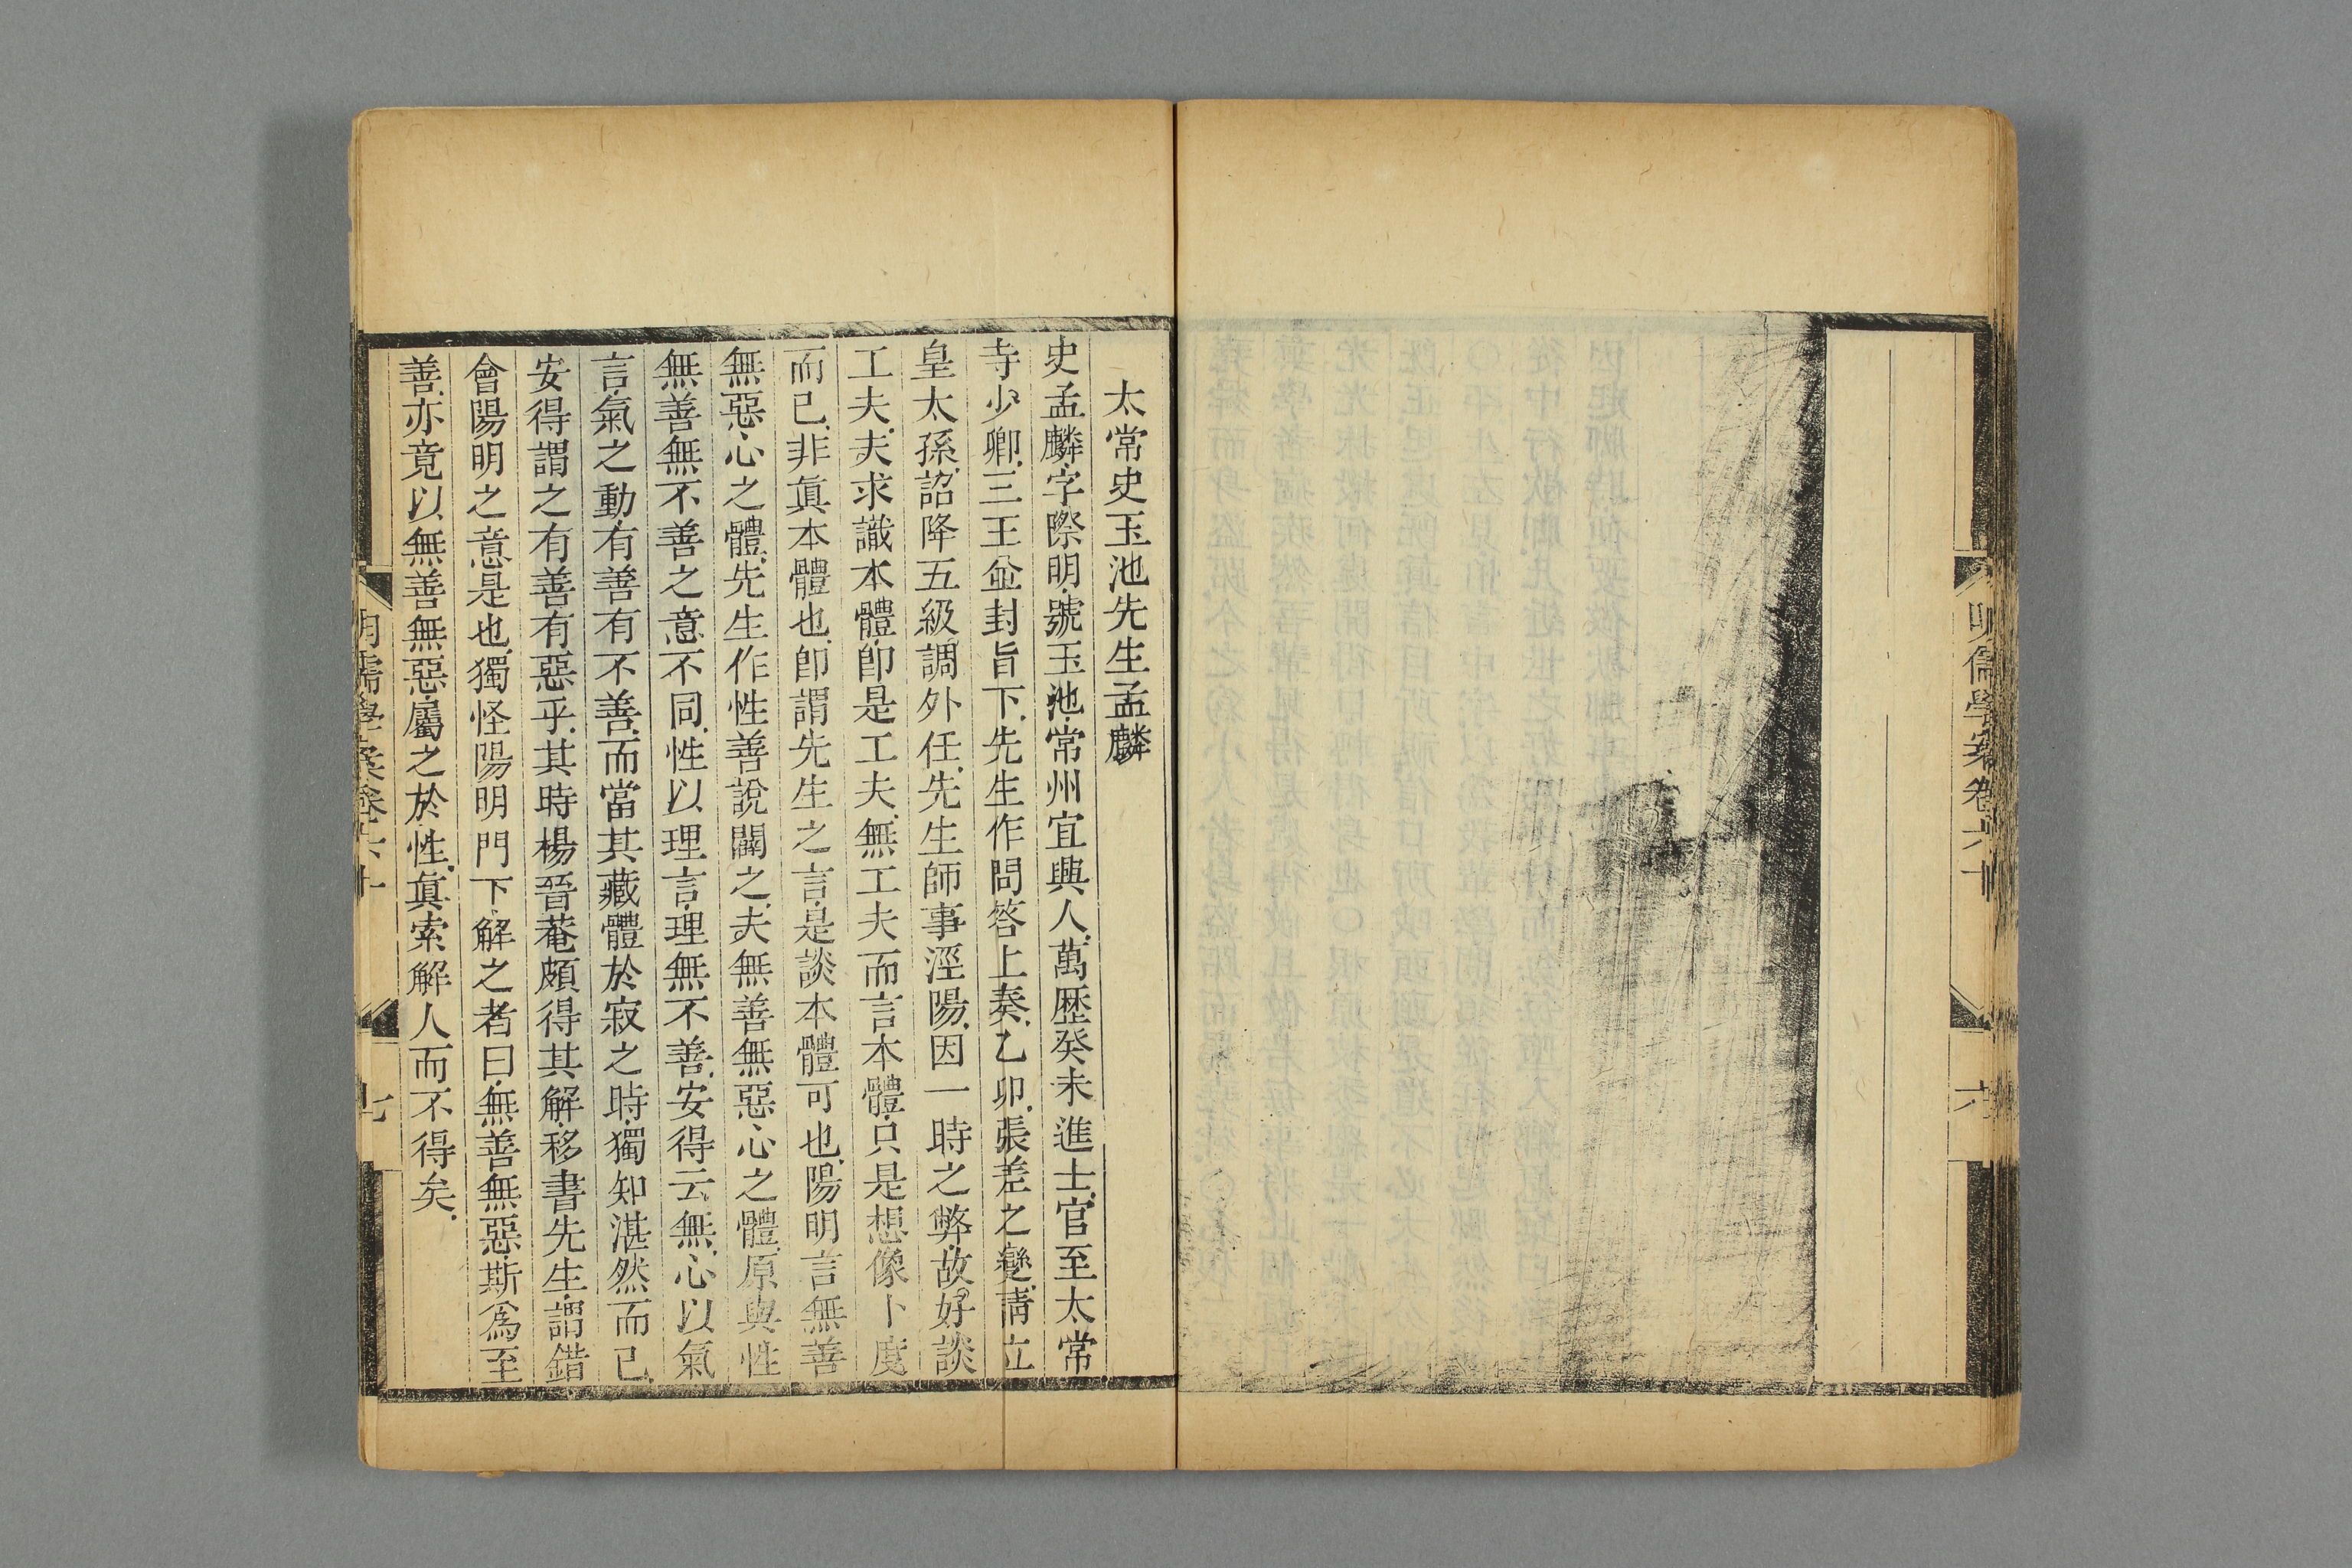 明儒學案卷六十
六
太常史玉池先生孟麟
史孟麟字際明號玉池常州宜興人萬歷癸未進士官至太常
寺少卿三王並封旨下先生作問答上奏乙卯張差之變請立
皇太孫詔降五級調外任先生師事涇陽因一時之弊故好談
工夫夫求識本體卽是工夫無工夫而言本體只是想像卜度
而已非眞本體也卽謂先生之言是談本體可也陽明言無善
無惡心之體先生作性善說闢之夫無善無惡心之體原與性
無善無不善之意不同性以理言理無不善安得云無心以氣
言氣之動有善有不善而當其藏體於寂之時獨知湛然而已
安得謂之有善有惡乎其時楊晉菴頗得其解移書先生謂錯
會陽明之意是也獨怪陽明門下解之者曰無善無惡斯爲至
善亦竟以無善無惡屬之於性眞索解人而不得矣
明儒學案卷六十
七